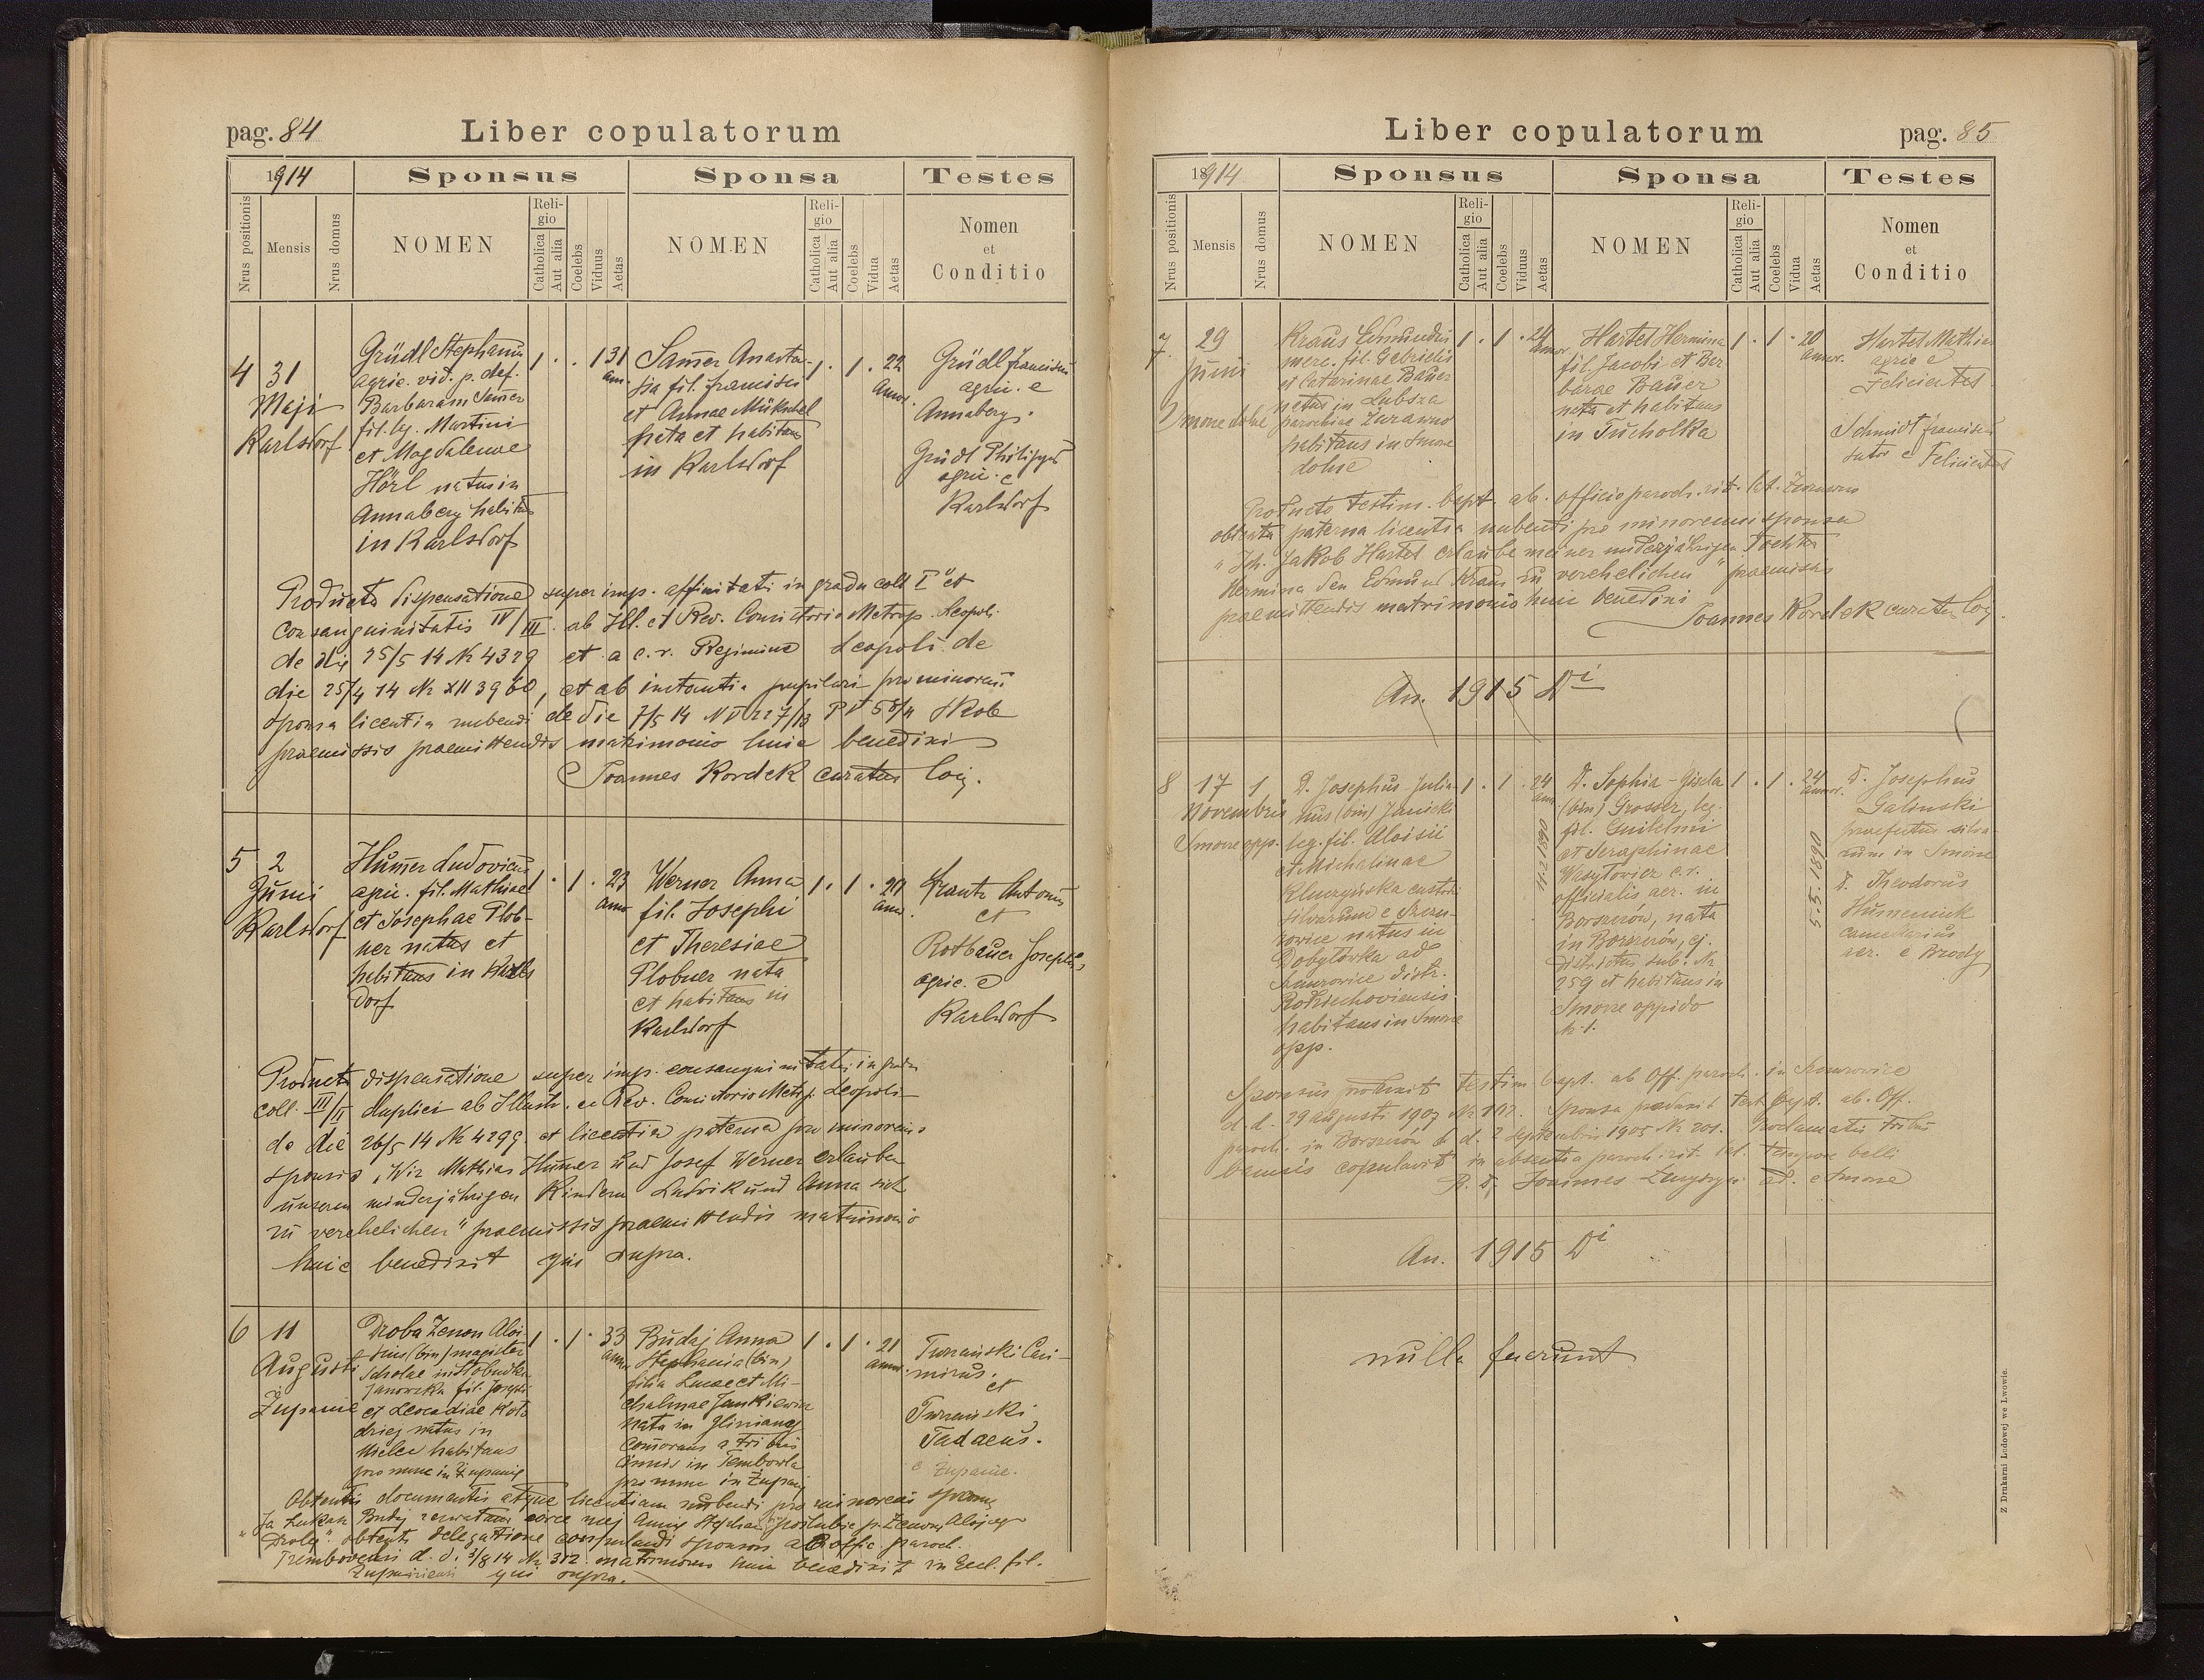 pag. 84 Liber copulatorum
1914 Sponsus Sponsa Testes
Nrus positionis Mensis Nrus domus NOMEN Religio Catholica Aut alia Coelebs Viduus Aetas NOMEN Religio Catholica Aut alia Coelebs Vidua Aetas Nomen et Conditio
4 31 Maji Karlsdorf
Gründl Stephanus
agric. vid. p. def.
Barbaram Samer
fil. leg. Martini
et Magdalenae
Hörl natus in
Annaberg habitans
in Karlsdorf
1 . . 1 31 ann.
Samer Anasta-
sia fil. Francisci
et Annae Mükschel
nata et habitans
in Karlsdorf
1 . 1 . 22 annor.
Gründl Franciscus
agric. e
Annaberg.
Gründl Philippus
agric. e
Karlsdorf
Producta dispensatione super imp. affinitatis in gradu coll I et
consanguinitatis IV/III ab Ill. et Rev. Consistorio Metrop. Leopoli.
de die 25/5 14 Nr 4329 et a c. r. Regimine Leopoli de
die 25/4 14 Nr XII 3960, et ab instantia pupilari pro minorenni
sponsa licentia nubendi de die 7/5 14 Skole
praemissis praemittendis matrimonio huic benedixi
Joannes Kordek curatus loci.
5 2 Juni Karlsdorf
Humer Ludovicus
agric. fil. Mathiae
et Josephae Plob-
ner natus et
habitans in Karls
dorf
1 . 1 . 23 ann.
Werner Anna
fil. Josephi
et Theresiae
Plobner nata
et habitans in
Karlsdorf
1 . 1 . 20 ann.
Frantz Antonius
et
Rotbauer Josephus
agric. e
Karlsdorf
Producta dispensatione super imp. consanguinitatis in gradu
coll. III/II duplici ab Illustr. et Rev. Consistorio Metrop. Leopoli
de die 26/5 14 Nr 4299. et licentia paterna pro minorennis
sponsis „Wir Mathias Humer und Josef Werner erlauben
unseren minderjährigen Kindern Ludwik und Anna sich
zu verehelichen“ praemissis praemittendis matrimonio
huic benedixit qui supra.
6 11 Augusti Żupanie
Droba Zenon Aloi-
sius (bin) magister
scholae in
Janowska fil. Josephi
et Leocadiae
natus in
Mielec habitans
pro nunc in Żupanie
1 . 1 . 33 ann.
Budzj Anna
Stephania (bin)
filia Lucae et Mi-
chalinae Jankiewicz
nata in Gliniany
comorans a tribus
annis in Trembowla
pro nunc in Żupanie
1 . 1 . 21 annor.
Turzański Casi-
mirus.
et
Turzański
Tadaeus.
e Żupanie.
Obtentis documentis atque licentiam nubendi pro minorenni sponsa
obtenta delegatione copulandi sponsos ab offic. paroch.
d. d. 3/8 14 Nr 312 matrimonio huic benedixit in Eccl. fil.
qui supra.
Liber copulatorum pag. 85
1914 Sponsus Sponsa Testes
Nrus positionis Mensis Nrus domus NOMEN Religio Catholica Aut alia Coelebs Viduus Aetas NOMEN Religio Catholica Aut alia Coelebs Vidua Aetas Nomen et Conditio
7. 29 Juni Smorze dolne
Kraus Edmundus
merc. fil. Gabrielis
et Catarinae Bauer
natus in Lubsza
parochiae Żurawno
habitans in Smorze
dolne
1 . 1 . 24 annor.
Hartel Hermina
fil. Jacobi et Bar
barae Bauer
nata et habitans
in Tucholka
1 . 1 . 20 annor.
Hartel Mathias
agric e
Felicienthal
Schmidt Franciscus
sutor e Felicienthal
Producto testim. bapt. ab officio paroch. rit. lat. Żurawno
obtenta paterna licentia nubendi pro minorenni sponsa
„Ich Jakob Hartel erlaube meiner minderjährigen Tochter
Hermina den Edmund Kraus zu verehelichen“ praemissis
praemittendis matrimonio huic benedixi
Joannes Kordek curatus loci.
An. 1915 Di
8 17 1 Novembris Smorze opp.
D. Josephus Julia-
nus (bin) Janicki
leg. fil. Aloisii
et Michalinae
Kluczyńska custos
silvarum e
natus in
Dobytówka ad
distr.
habitans in Smorze
opp.
1 . 1 . 24 ann. 4.12.1890
D. Sophia-Gisela
(bin) Grosser, leg.
fil. Guilelmi
et Seraphinae
Wasylowicz c. r.
officialis aer. in
Borszczów, nata
in Borszczów, ej.
districtus sub. Nr
259 et habitans in
Smorze oppido
Nr 1.
1 . 1 . 24 annor. 5.5.1890
D. Josephus
Galinski
praefectus silva-
rum in Smorze
D. Theodorus
Humeniuk
aer. e Brody
Sponsus produxit testim bapt. ab Off. paroch. in
d. d. 29 augusti 1907 Nr 112. Sponsa produxit test bapt. ab. Off.
paroch. in Borszczów d. d. 2 Septembris 1905 Nr 201. Proclamatis tribus
bannis copulavit in absentia parochi rit. lat. tempore belli
e Smorze
An. 1915 Di
nulla fuerunt
Z Drukarni Ludowej we Lwowie.